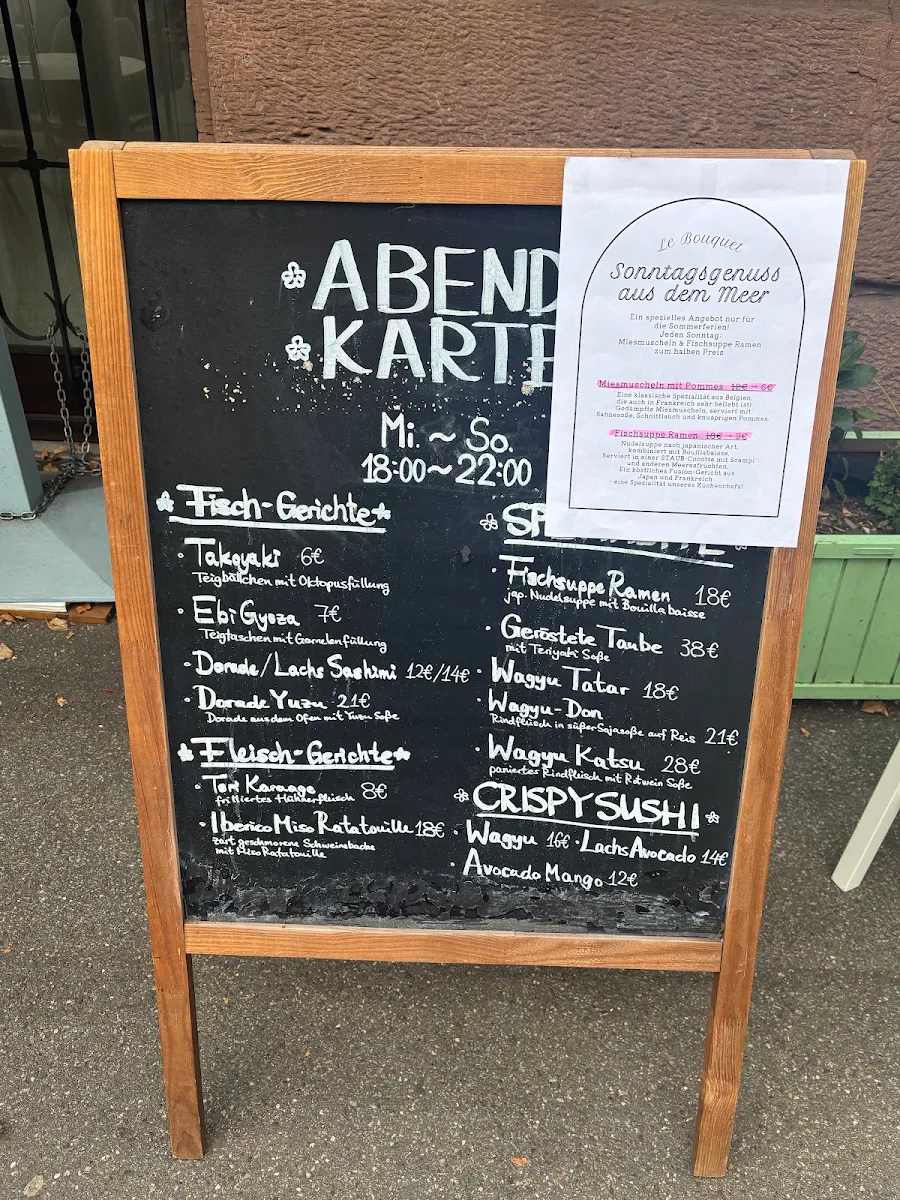 ABEND
KARTE
Mi. ~ So.
18:00~22:00
Fisch-Gerichte
· Takoyaki 6€
Teigbällchen mit Oktopusfüllung
· Ebi Gyoza 7€
Teigtaschen mit Garnelenfüllung
· Dorade/Lachs Sashimi 12€/14€
· Dorade Yuzu 21€
Dorade aus dem Ofen mit Yuzu Soße
Fleisch-Gerichte
· Tori Karaage 8€
frittiertes Hühnerfleisch
· Iberico Miso Ratatouille 18€
zart geschmorene Schweinebacke
mit Miso Ratatouille
· Fischsuppe Ramen 18€
jap. Nudelsuppe mit Bouillabaisse
· Geröstete Taube 38€
mit Teriyaki Soße
· Wagyu Tatar 18€
· Wagyu-Don
Rindfleisch in süßer Sojasoße auf Reis 21€
· Wagyu Katsu 28€
paniertes Rindfleisch mit Rotwein Soße
CRISPY SUSHI
· Wagyu 16€ · Lachs Avocado 14€
· Avocado Mango 12€
Le Bouquet
Sonntagsgenuss
aus dem Meer
Ein spezielles Angebot nur für
die Sommerferien!
Jeden Sonntag:
Miesmuscheln & Fischsuppe Ramen
zum halben Preis
Miesmuscheln mit Pommes 12€ → 6€
Eine klassische Spezialität aus Belgien,
die auch in Frankreich sehr beliebt ist!
Gedämpfte Miesmuscheln, serviert mit
Sahnesoße, Schnittlauch und knusprigen Pommes.
Fischsuppe Ramen 18€ → 9€
Nudelsuppe nach japanischer Art,
kombiniert mit Bouillabaisse.
Serviert in einer STAUB-Cocotte mit Scampi
und anderen Meeresfrüchten.
Ein köstliches Fusion-Gericht aus
Japan und Frankreich
- eine Spezialität unseres Küchenchefs!